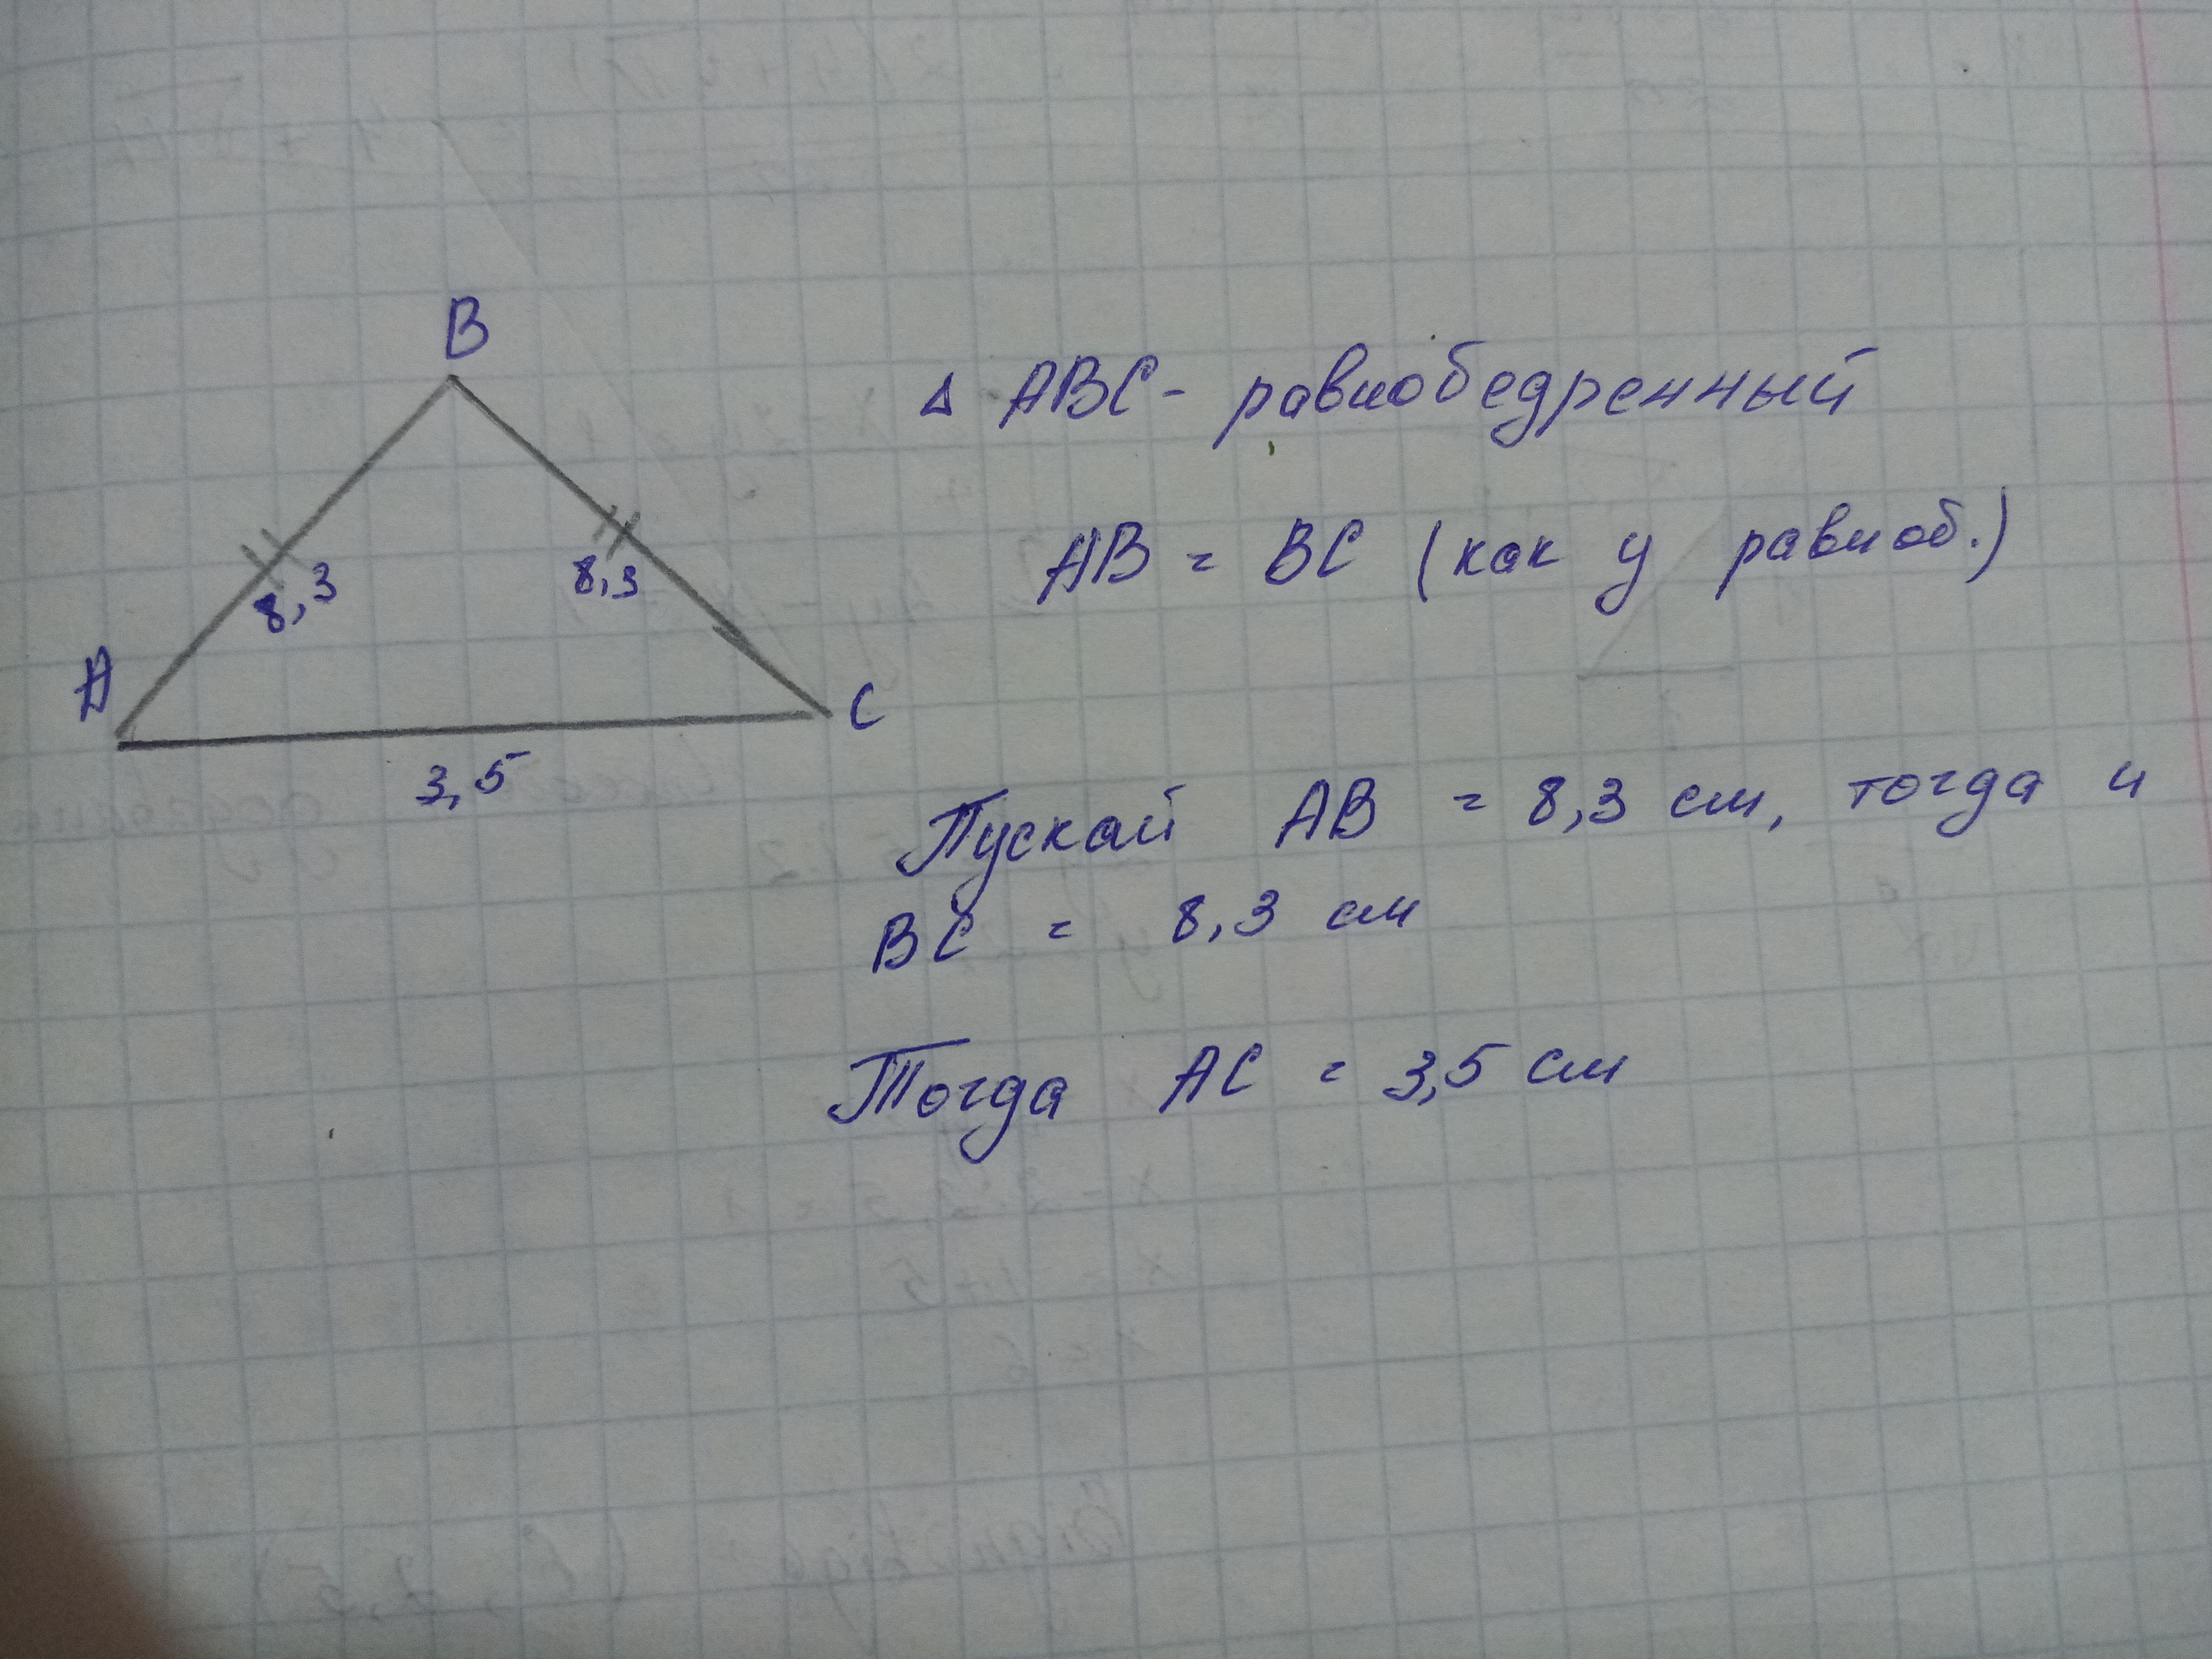 B
△ ABC - равнобедренный
AB = BC (как у равноб.)
8,3
8,3
A
C
3,5
Пускай AB = 8,3 см, тогда и
BC = 8,3 см
Тогда AC = 3,5 см